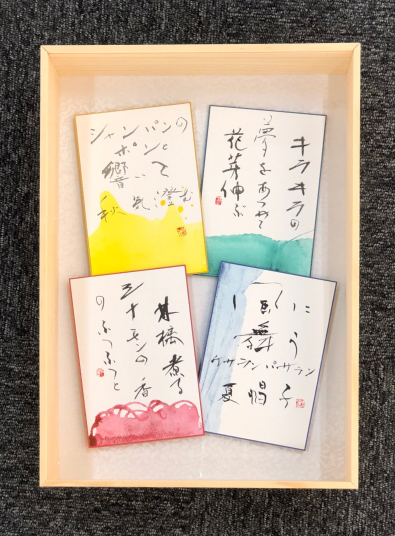 シャンパンの
ポンと
響いて
秋気澄む
キラキラの
夢をあつめて
花芽伸ぶ
林檎煮る
シナモンの香
のふつふつと
風に
舞う
ケサランパサラン
夏帽子